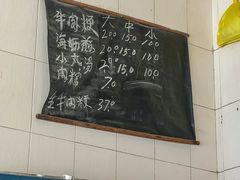 牛肉粳 大 中 小
200 150 100
海蛎粳 200 150 100
小丸湯 200 150 100
肉粽 70
生牛肉粳 370